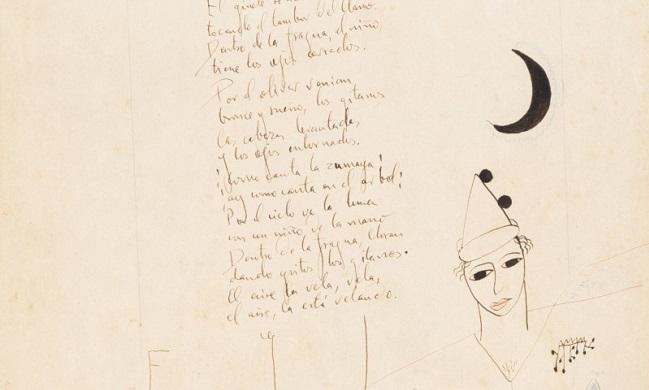 El jinete se
tocando el tambor del llano.
Dentro de la fragua, el niño,
tiene los ojos cerrados.
Por el olivar venian
bronce y sueño, los gitanos
las cabezas levantadas,
y los ojos entornados.
¡Como canta la zumaya!
¡ay como canta en el arbol!
Por el cielo va la luna
con un niño de la mano
Dentro de la fragua, lloran
dando gritos los gitanos.
El aire la vela, vela,
el aire, la está velando.